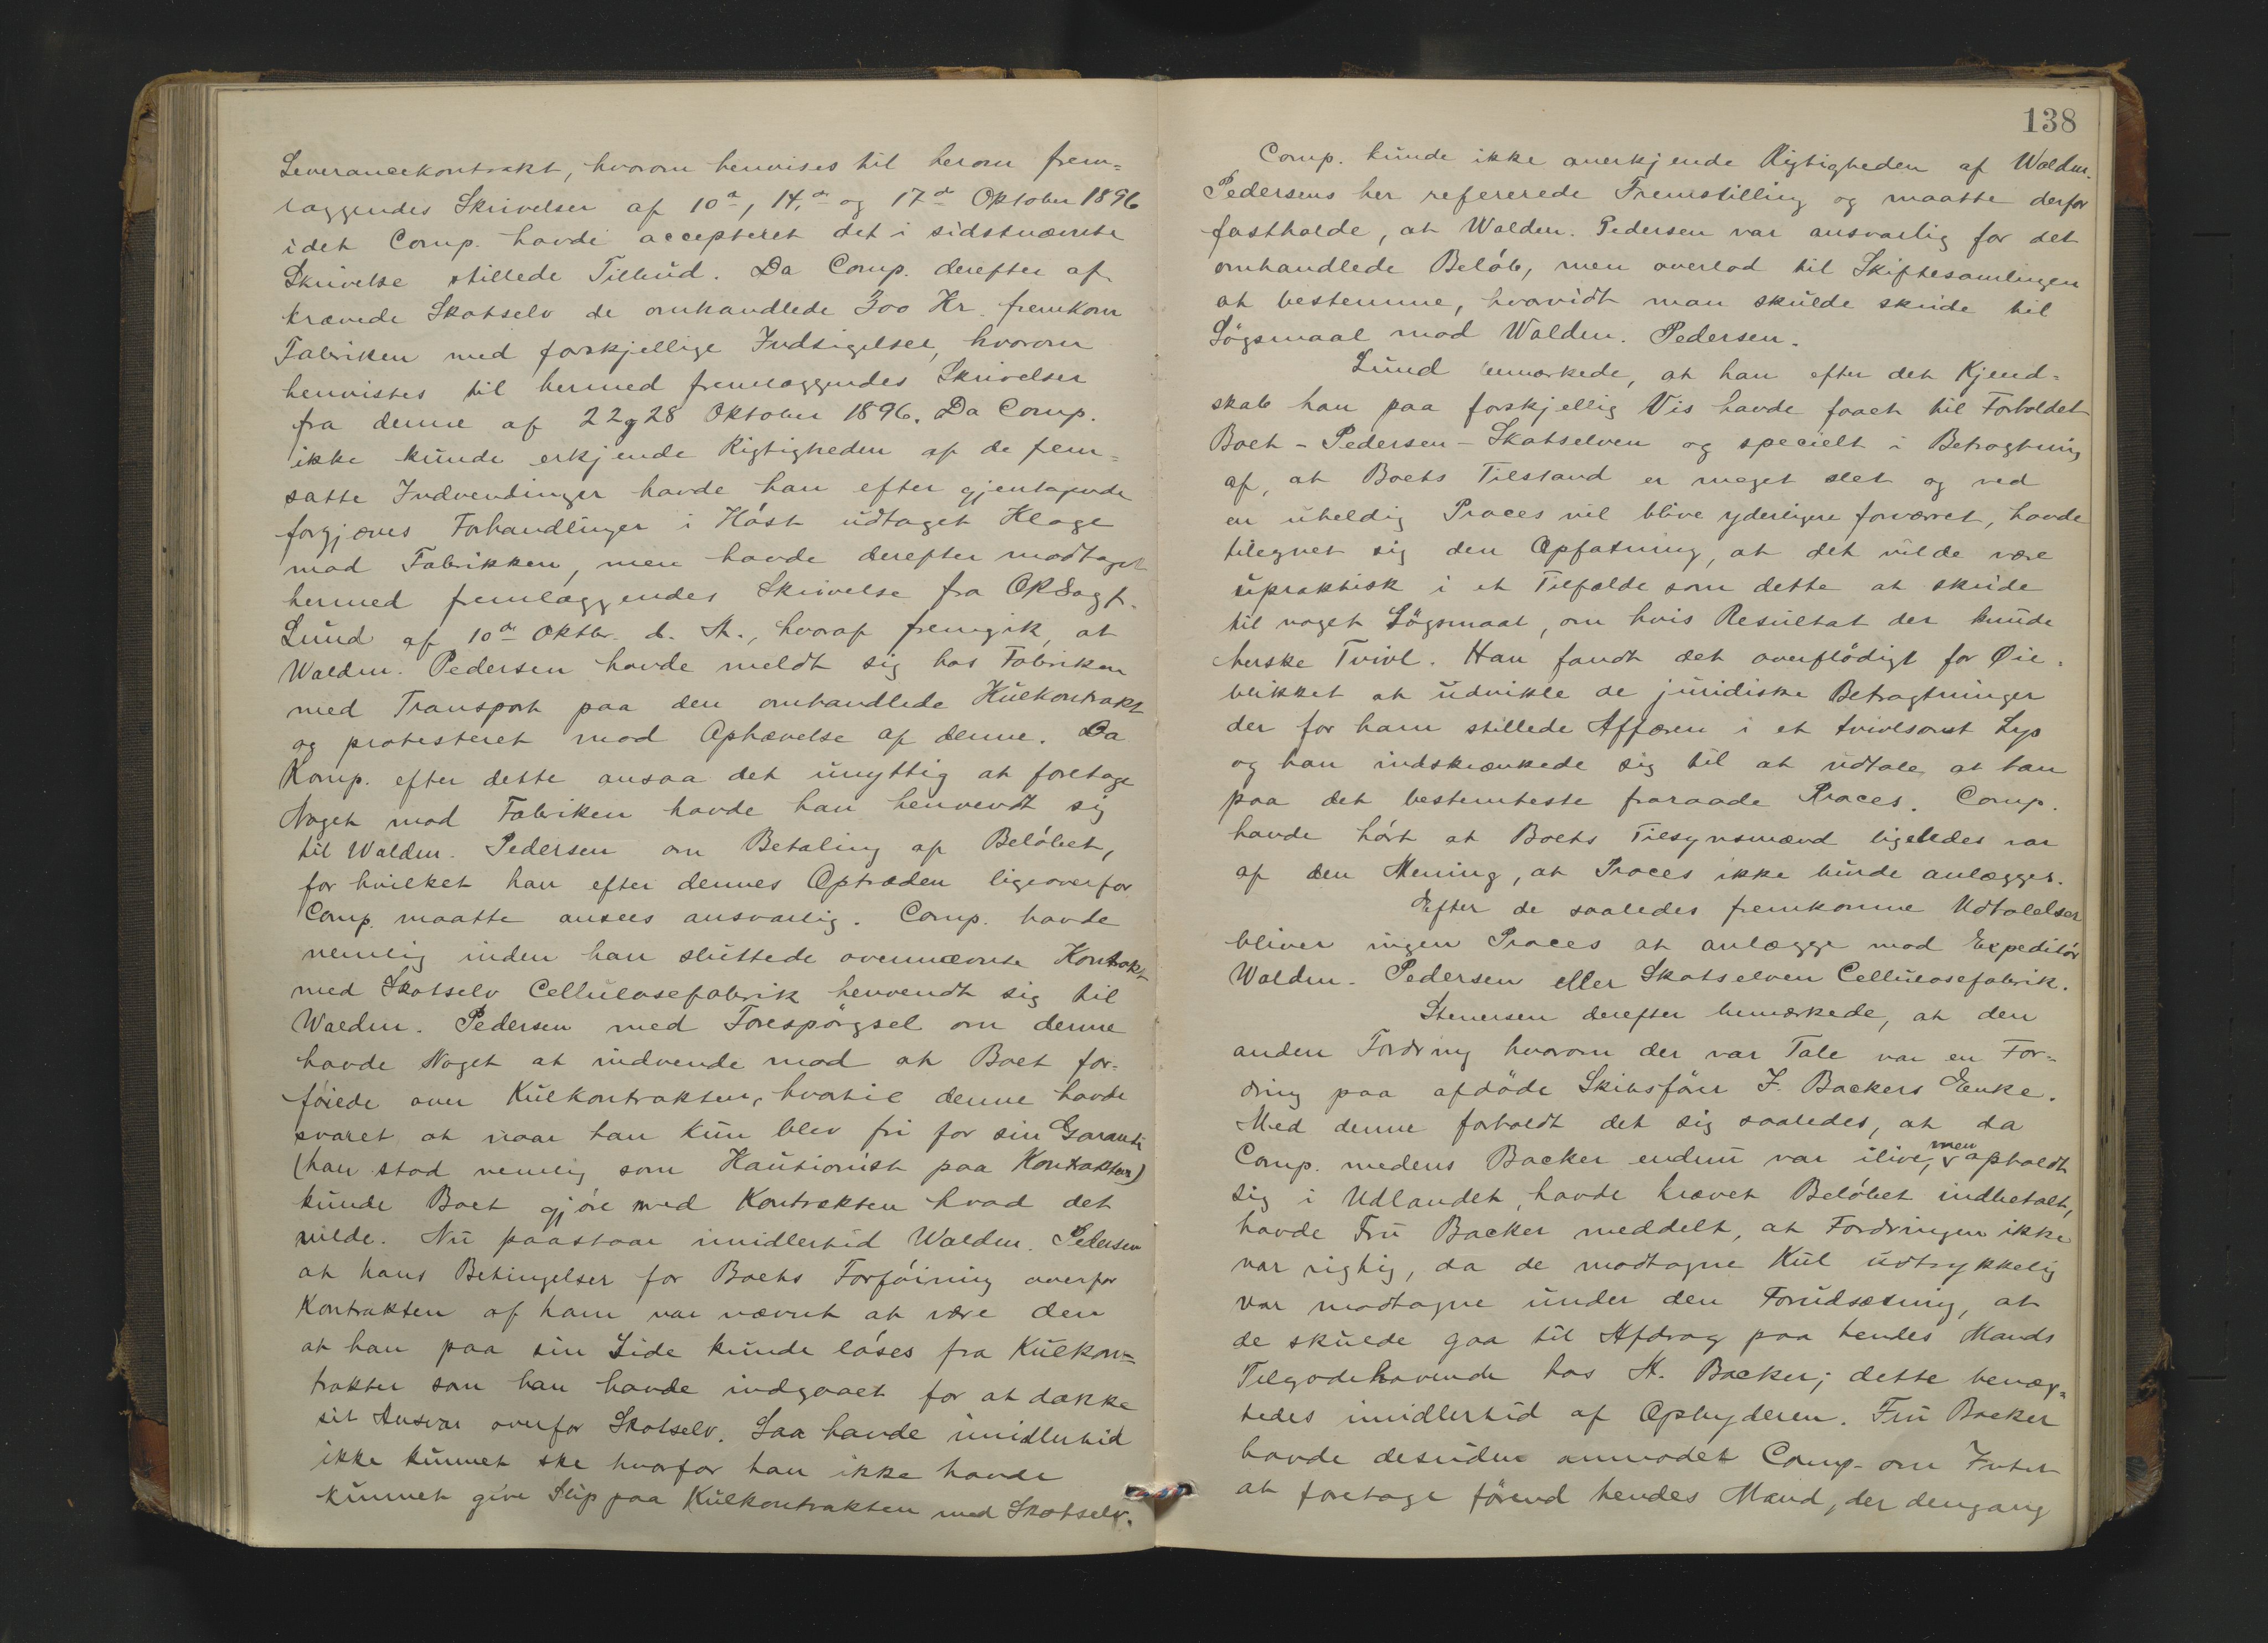 Leverancekontrakt, hvorom henvises til herom frem=
læggendes Skrivelser af 10de, 14de og 17de Oktober 1896
idet Comp. havde accepteret det i sidstnævnte
Skrivelse stillede Tilbud. Da Comp. derefter af-
krævede Skotselv de omhandlede 300 Kr. fremkom
Fabriken med forskjellige Indsigelser, hvorom
henvistes til hermed fremlæggendes Skrivelser
fra denne af 22 og 28 Oktober 1896. Da Comp.
ikke kunde erkjende Rigtigheden af de frem=
satte Indvendinger havde han efter gjentagende
forgjæves Forhandlinger i Høst udtaget Klage
mod Fabrikken, men havde derefter modtaget
hermed fremlæggendes Skrivelse fra ORSagf.
Lund af 10de Oktbr. d. A., hvoraf fremgik, at
Waldm. Pedersen havde meldt sig hos Fabriken
med Transport paa den omhandlede Kulkontrakt
og protesteret mod Ophævelse af denne. Da
Komp. efter dette ansaa det unyttig at foretage
Noget mod Fabriken havde han henvendt sig
til Waldm. Pedersen om Betaling af Beløbet,
for hvilket han efter dennes Optræden ligeoverfor
Comp. maatte ansees ansvarlig. Comp. havde
nemlig inden han sluttede ovennævnte Kontrakt
med Skotselv Cellulosefabrik henvendt sig til
Waldm. Pedersen med Forespørgsel om denne
havde Noget at indvende mod at Boet for=
føiede over Kulkontrakten, hvortil denne havde
svaret at naar han kun blev fri for sin Garanti
(han stod nemlig som Kautionist paa Kontrakten)
kunde Boet gjøre med Kontrakten hvad det
vilde. Nu paastaar imidlertid Waldm. Pedersen
at hans Betingelser for Boets Forføining overfor
Kontrakten af ham var nævnt at være den
at han paa sin Side kunde løses fra Kulkon=
trakter som han havde indgaaet for at dække
sit Ansvar overfor Skotselv. Saa havde imidlertid
ikke kunnet ske hvorfor han ikke havde
kunnet give Slip paa Kulkontrakten med Skotselv.
138
Comp. kunde ikke anerkjende Rigtigheden af Waldm.
Pedersens her refererede Fremstilling og maatte derfor
fastholde, at Waldm. Pedersen var ansvarlig for det
omhandlede Beløb, men overlod til Skiftesamlingen
at bestemme, hvorvidt man skulde skride til
Søgsmaal mod Waldm. Pedersen.
Lund bemærkede, at han efter det Kjend=
skab han paa forskjellig Vis havde faaet til Forholdet
Boet - Pedersen - Skotselven og specielt i Betragtning
af, at Boets Tilstand er meget slet og ved
en uheldig Proces vil blive yderligere forværret, havde
tilegnet sig den Opfatning, at det vilde være
upraktisk i et Tilfælde som dette at skride
til noget Søgsmaal, om hvis Resultat der kunde
herske Tvivl. Han fandt det overflødigt for Øie=
blikket at udvikle de juridiske Betragtninger
der for ham stillede Affæren i et tvivlsomt Lys
og han indskrænkede sig til at udtale, at han
paa det bestemteste fraraade Proces. Comp.
havde hørt at Boets Tilsynsmænd ligeledes var
af den Mening, at Proces ikke burde anlægges.
Efter de saaledes fremkomne Udtalelser
bliver ingen Proces at anlægge mod Expeditør
Waldm. Pedersen eller Skotselven Cellulosefabrik.
Stenersen derefter bemærkede, at den
anden Fordring hvorom der var Tale var en For=
dring paa afdøde Skibsfører F. Backers Enke.
Med denne forholdt det sig saaledes, at da
Comp. medens Backer endnu var ilive, men opholdt
sig i Udlandet, havde krævet Beløbet indbetalt,
havde Fru Backer meddelt, at Fordringen ikke
var rigtig, da de modtagne Kul udtrykkelig
var modtagne under den Forudsætning, at
de skulde gaa til Afdrag paa hendes Mands
Tilgodehavende hos H. Backer; dette benæg=
tedes imidlertid af Opbyderen. Fru Backer
havde desuden anmodet Comp. om Intet
at foretage førend hendes Mand, der dengang